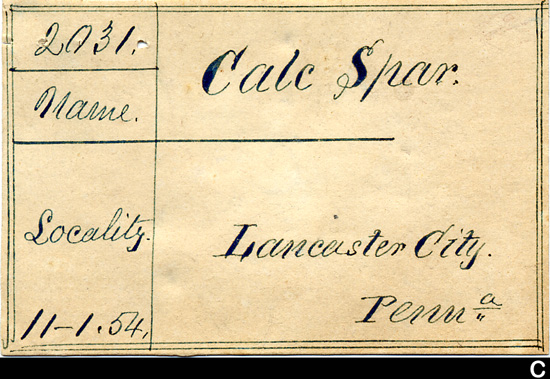 2031.
Name.
Calc Spar.
Locality.
Lancaster City.
Penn<sup>a</sup>
11-1.54.
C